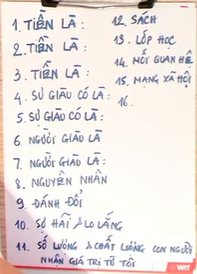 1. TIỀN LÀ :
2. TIỀN LÀ :
3. TIỀN LÀ :
4. SỰ GIÀU CÓ LÀ :
5. SỰ GIÀU CÓ LÀ :
6. NGƯỜI GIÀU LÀ
7. NGƯỜI GIÀU LÀ :
8. NGUYÊN NHÂN
9. ĐÁNH ĐỔI
10. SỢ HÃI & LO LẮNG
11. SỐ LƯỢNG & CHẤT LƯỢNG CON NGƯỜI
NHÂN GIÁ TRỊ TỪ TÔI
12. SÁCH
13. LỚP HỌC
14. MỐI QUAN HỆ
15. MẠNG XÃ HỘI
16.